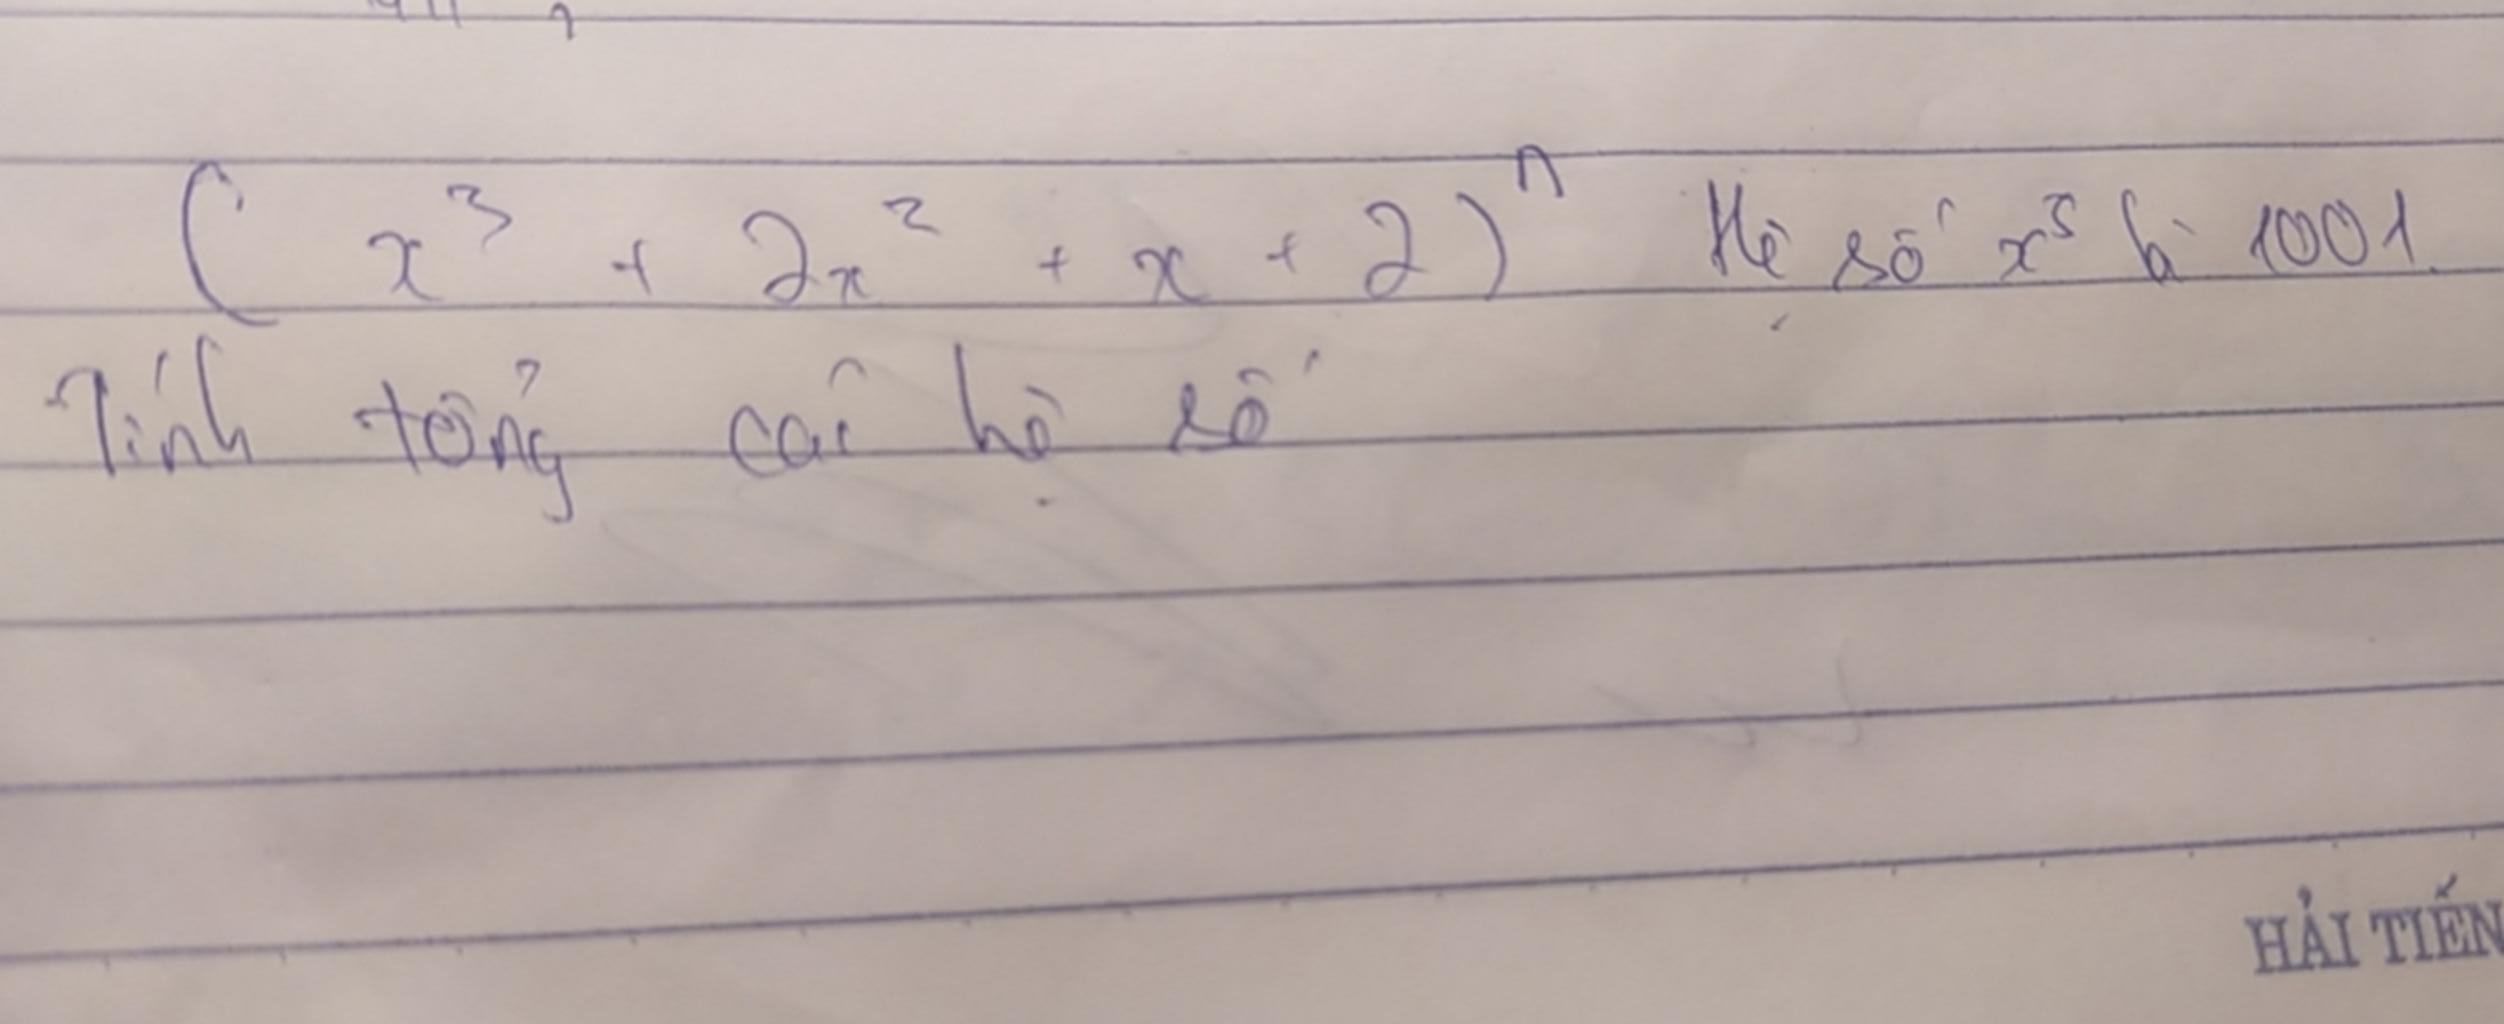 ( x³ + 2x² + x + 2 )ⁿ Hệ số x⁵ là 1001.
Tính tổng các hệ số
HẢI TIẾN